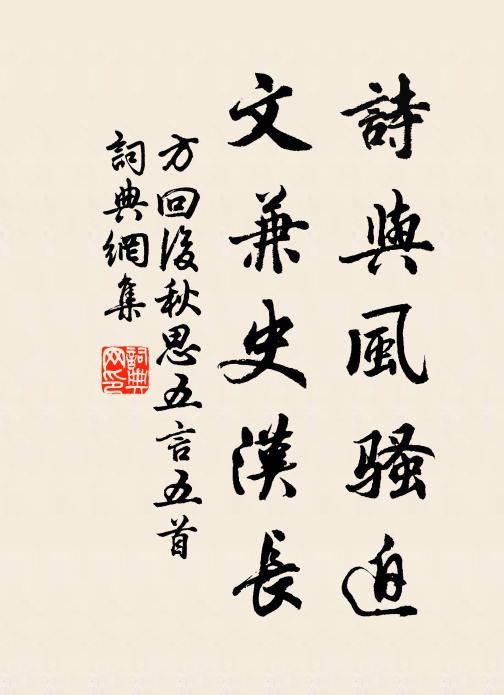 詩與風騷迫
文兼史漢長
方回後秋思五言五首
詞典網集
詞典网印